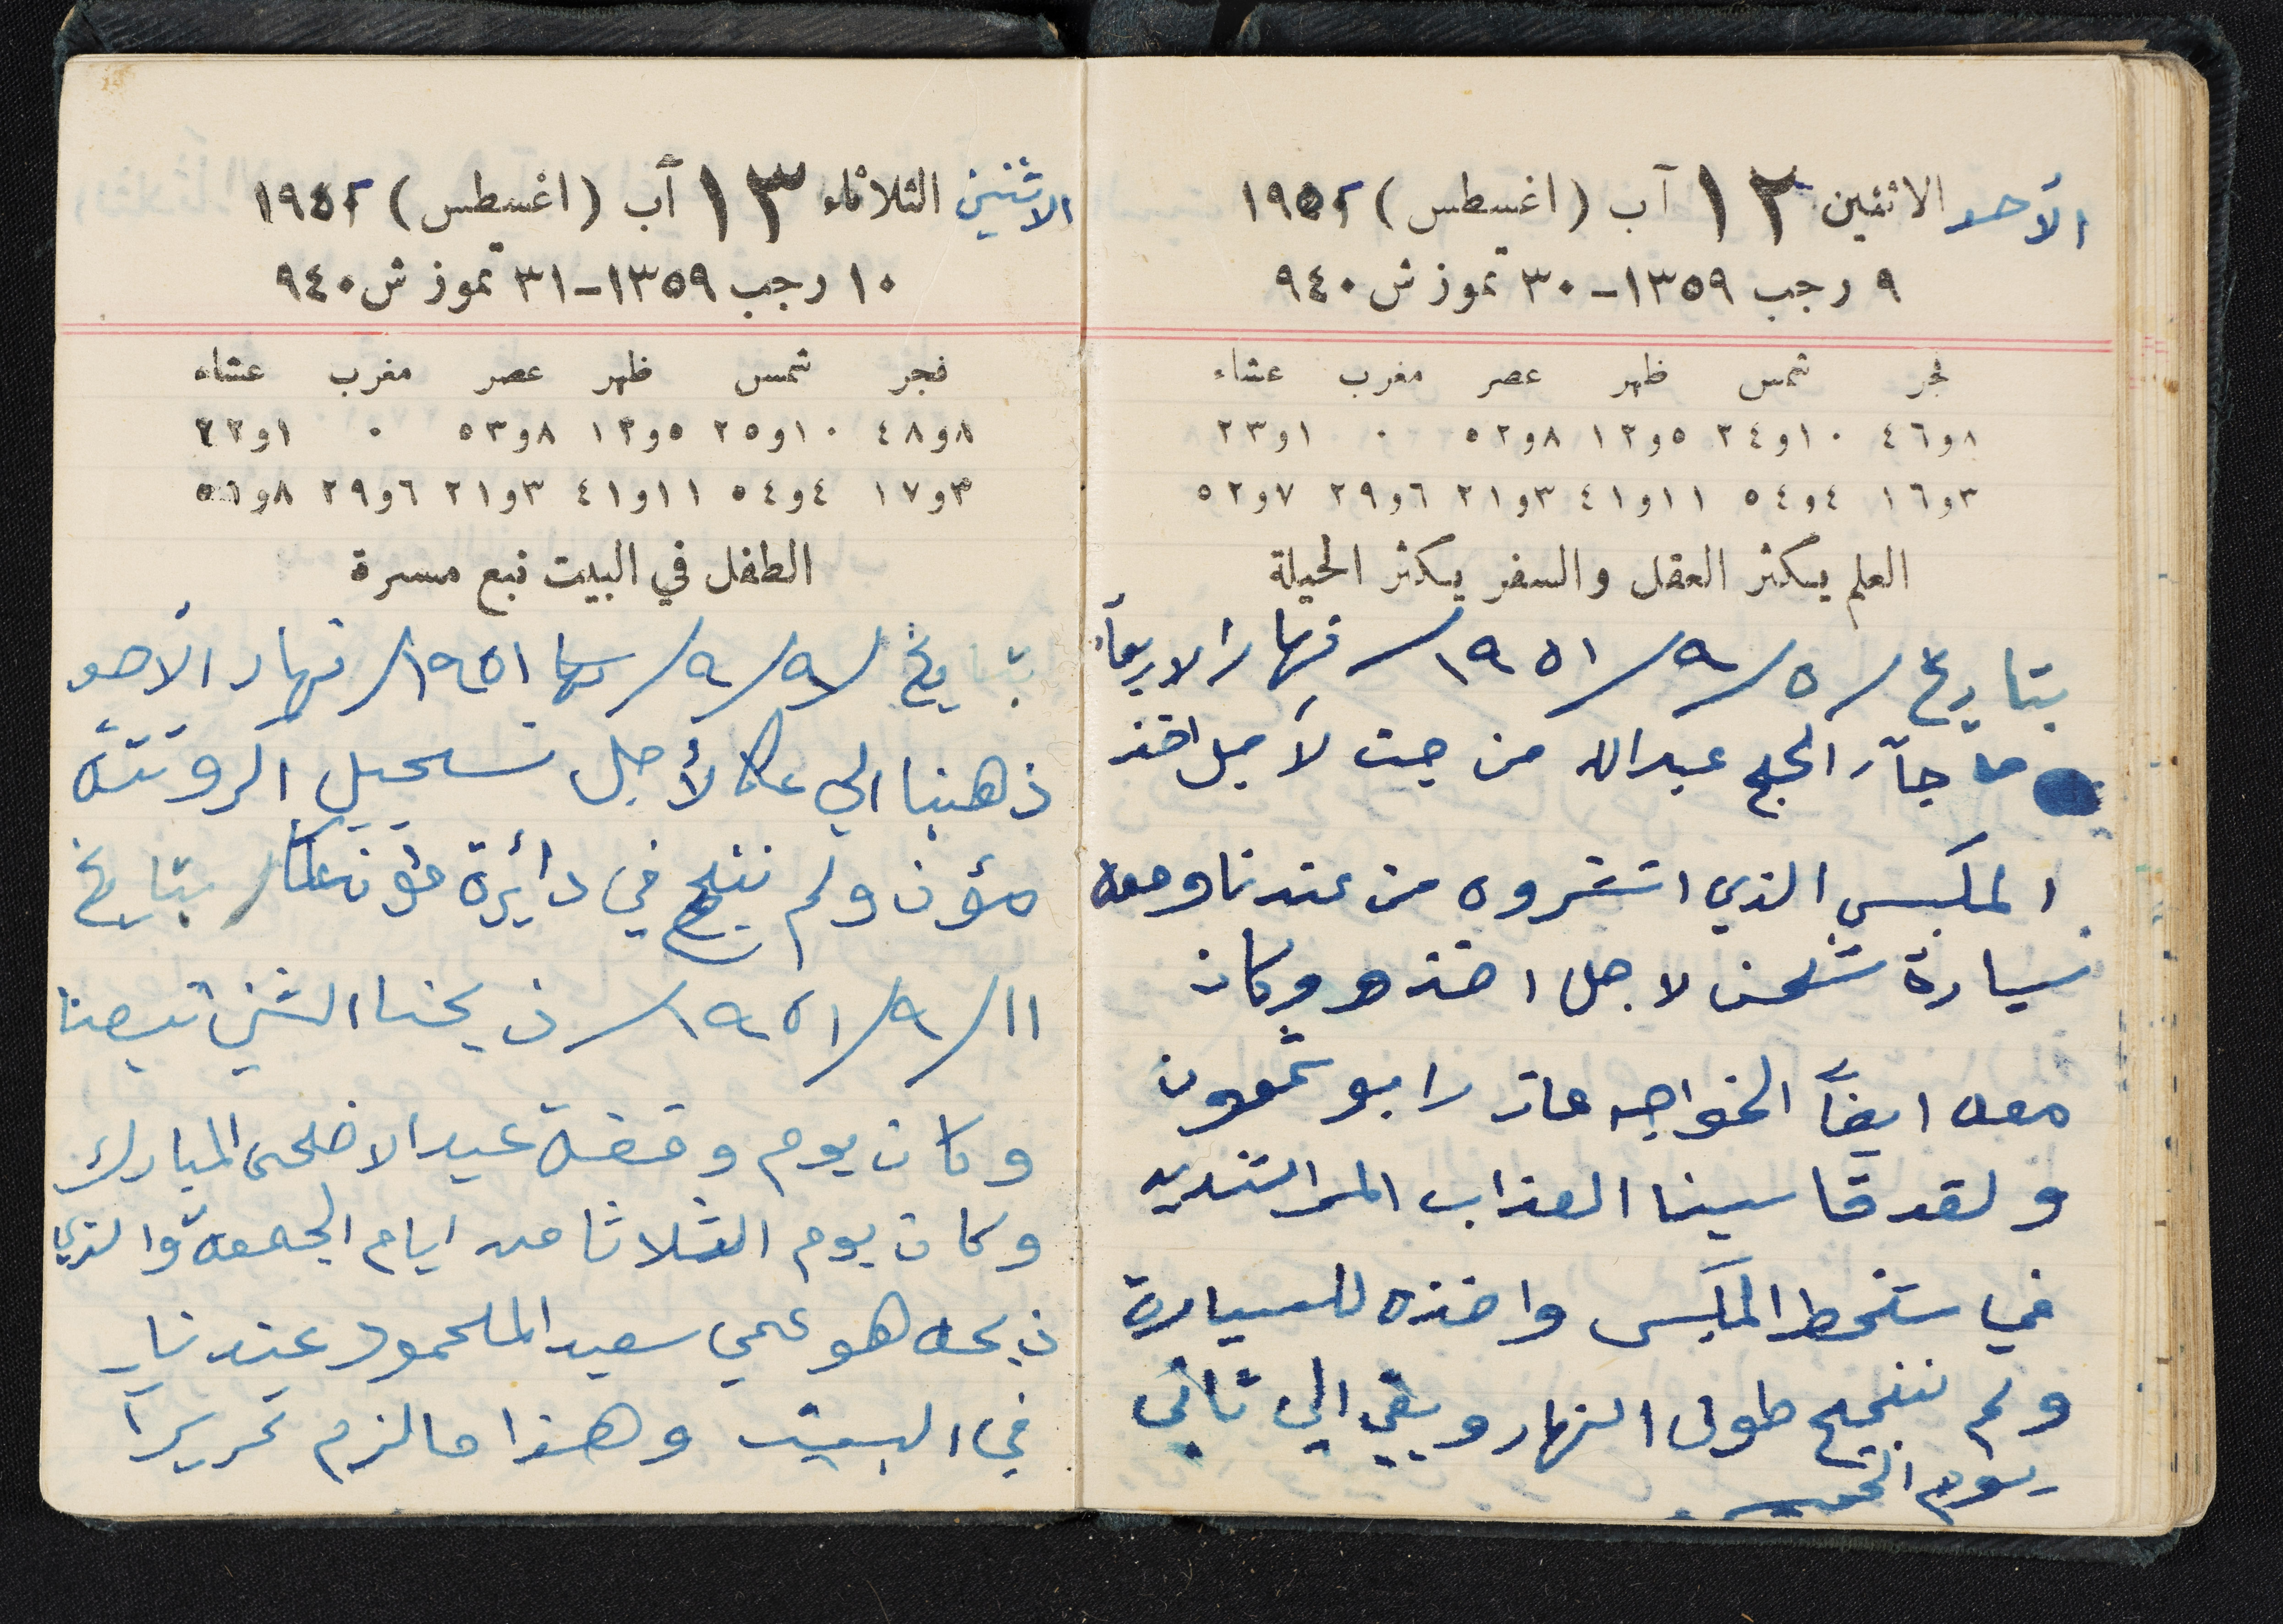 الأحد الاثنين ١٢ آب (اغسطس) ١٩٥٢
٩ رجب ١٣٥٩-٣٠ تموز ش ٩٤٠
فجر شمس ظهر عصر مغرب عشاء
٨و٤٦ ١٠و٢٤ ٥و١٢ ٨و٥٢ ٠ ١و٢٣
٣و١٦ ٤و٥٤ ١١و٤١ ٣و٢١ ٦و٢٩ ٧و٥٢
العلم يكثر العقل والسفر يكثر الحيلة
بتاريخ /٥/٩/١٩٥١/ نهار الاربعاً
جآر الحج عبدالله من جت لأجل اخذ
المكبس الذي اشتروه من عندنا ومعه
سيارة شحن لاجل اخذه وكان
معه ايضاً الخواجه عازر ابو شمعون
ولقد قاسينا العذاب المر الشديد
في المكبس واخذه للسيارة
ولم ننجح طول النهار وبقي الي ثاني
يوم الخميس
الاثنين الثلاثاء ١٣ آب (اغسطس) ١٩٥٢
١٠ رجب ١٣٥٩-٣١ تموز ش ٩٤٠
فجر شمس ظهر عصر مغرب عشاء
٨و٤٨ ١٠و٢٥ ٥و١٢ ٨و٥٣ ٠ ١و٢٢
٣و١٧ ٤و٥٤ ١١و٤١ ٣و٢١ ٦و٢٩ ٨و٥١
الطفل في البيت نبع مسرة
بتاريخ /٩/٩/ ١٩٥١/ نهار الأحد
ذهبنا الي عكا لأجل تسجيل الروتته
مؤن ولم ننجح في دأيرة مؤن عكا/ بتاريخ
١١/٩/١٩٥١/ ذبحنا الشني تبعنا
وكان يوم وقفة عيد الاضحى المبارك
وكان يوم الثلاثا من ايام الجمعة والذي
ذبحه هو عمي سعيد الملحمود عندنا
في البيت وهذا ما لزم تحريراً